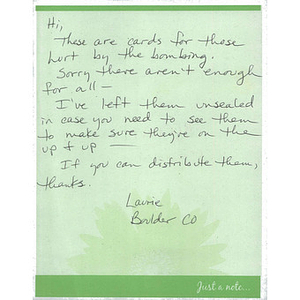 Hi,
These are cards for those
hurt by the bombing.
Sorry there aren't enough
for all —
I've left them unsealed
in case you need to see them
to make sure they're on the
up & up —
If you can distribute them,
thanks.
Laurie
Boulder CO
Just a note...